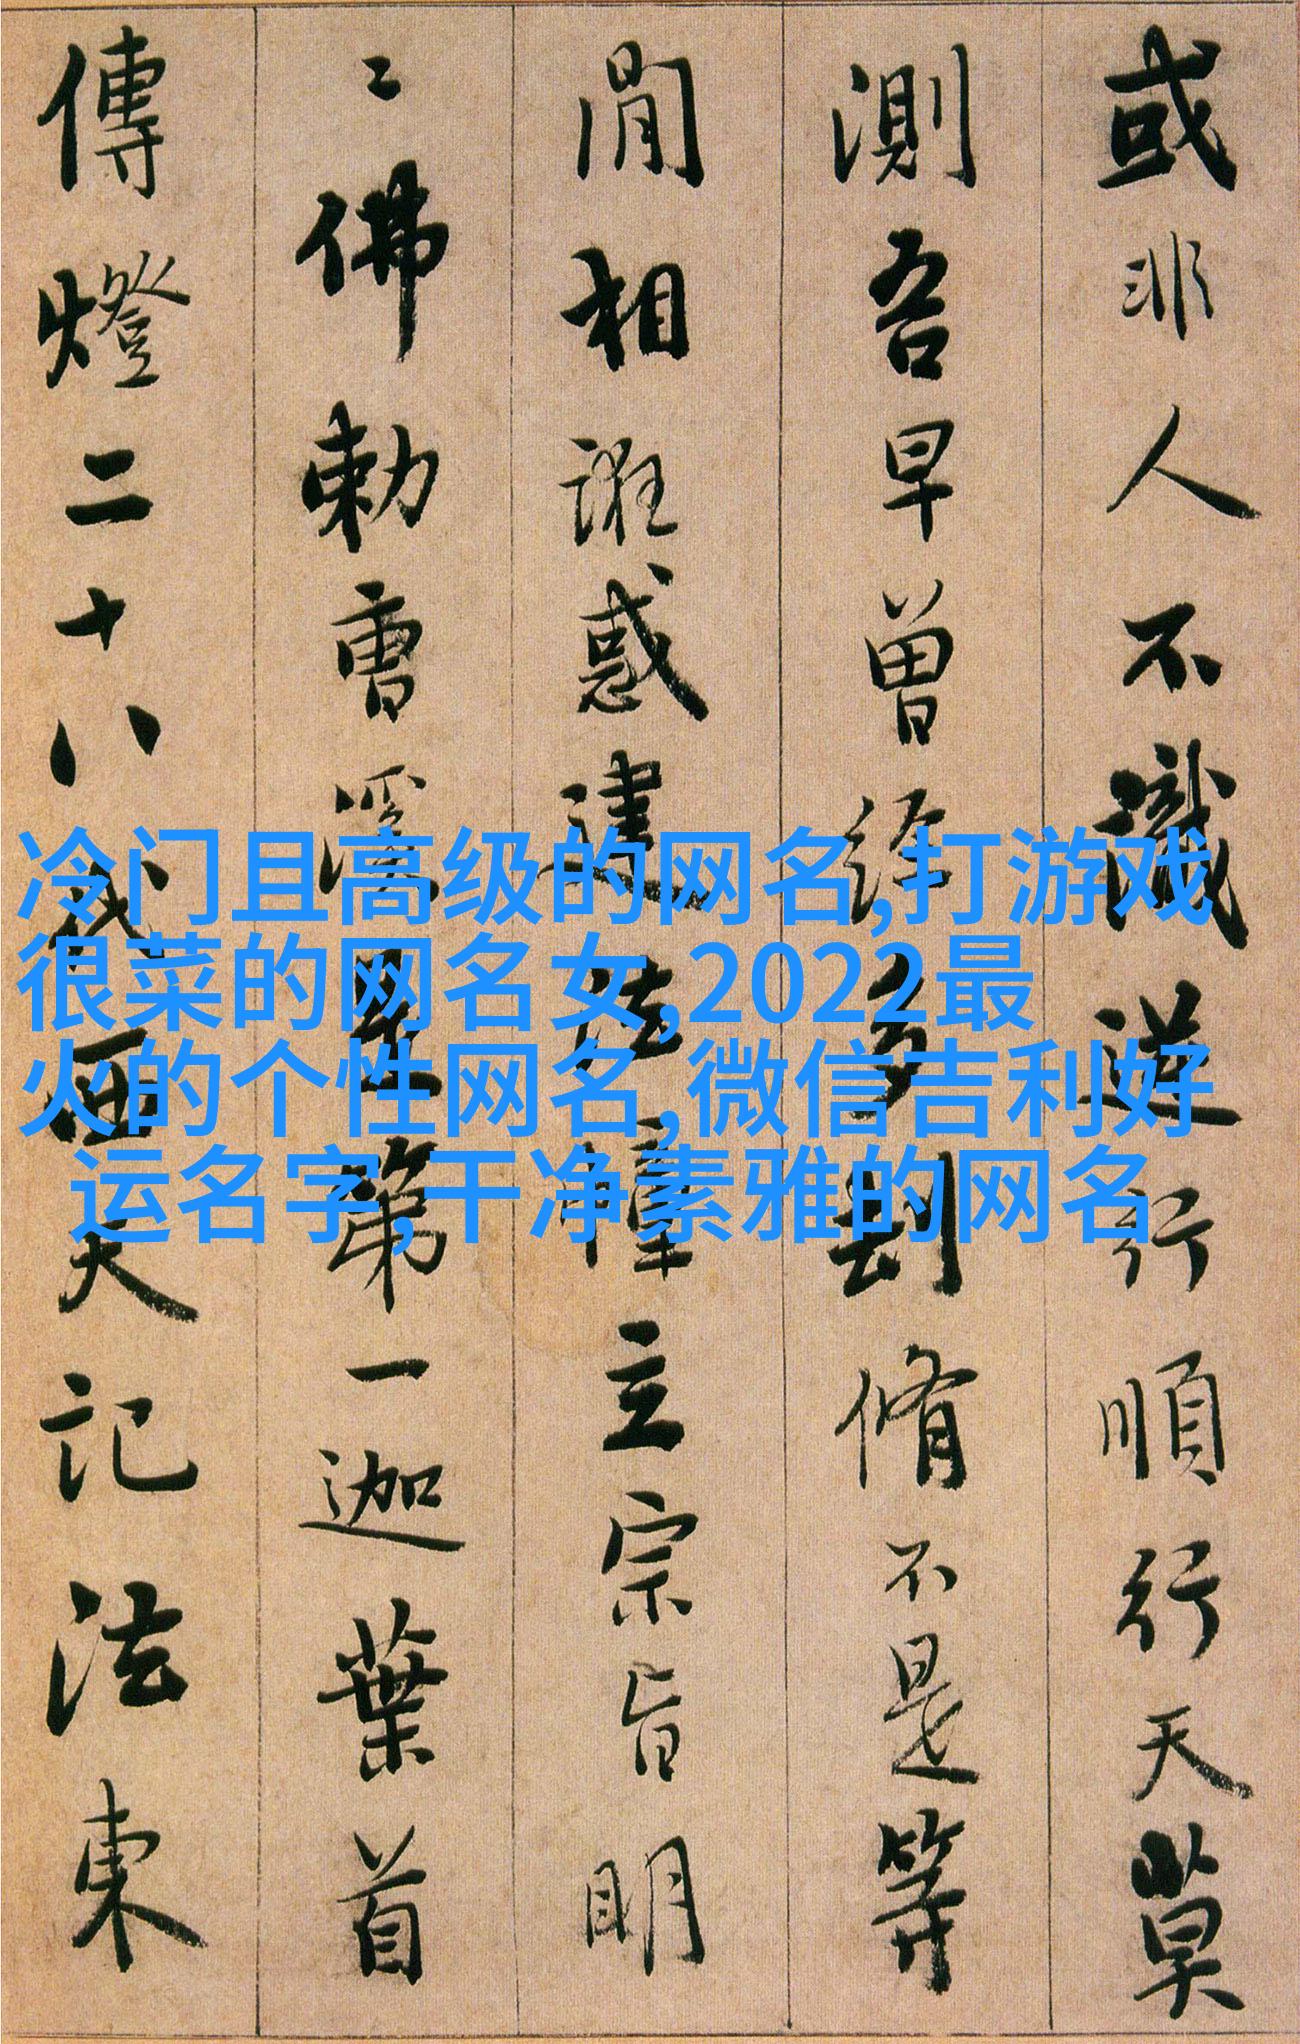 或非人不識逆行順行天莫
測吾早曾經多刧脩不是等
閒相誑惑建法幢立宗旨明
〻佛勅曹溪是第一迦葉首
傳燈二十八代西天記法東
冷门且高级的网名,打游戏
很菜的网名女,2022最
火的个性网名,微信吉利好
运名字,干净素雅的网名